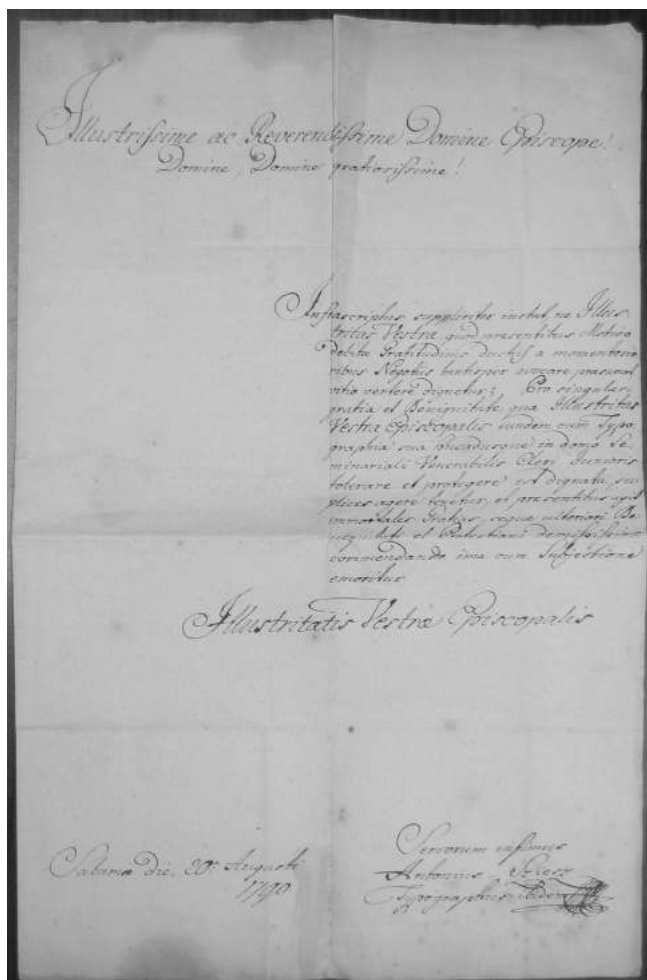 Illustrissime ac Reverendissime Domine Episcope!
Domine, Domine gratiosissime!
Infrascriptus suppliciter instat, ne Illus-
tritas Vestra quod praesentibus Motivo
debitae Gratitudinis ductus a momentosio
ribus Negotiis tantisper avocare praesumat
vitio vertere dignetur; Pro singulari
gratia et Benignitate qua Illustritas
Vestra Episcopalis eundem cum Typo
graphia sua hucadusque in domo Se
minariali Venerabilis Cleri Junioris
tolerare et protegere est dignata, sup
plices agere tenetur, et praesentibus agit
immortales Grates, seque ulteriori Be
nignitati et Protectioni demississime
commendando ima cum Subjectione
emoritur
Illustritatis Vestrae Episcopalis
Sabaria die 20 Augusti
1790
Servorum infimus
Antonius
Typographus ibidem